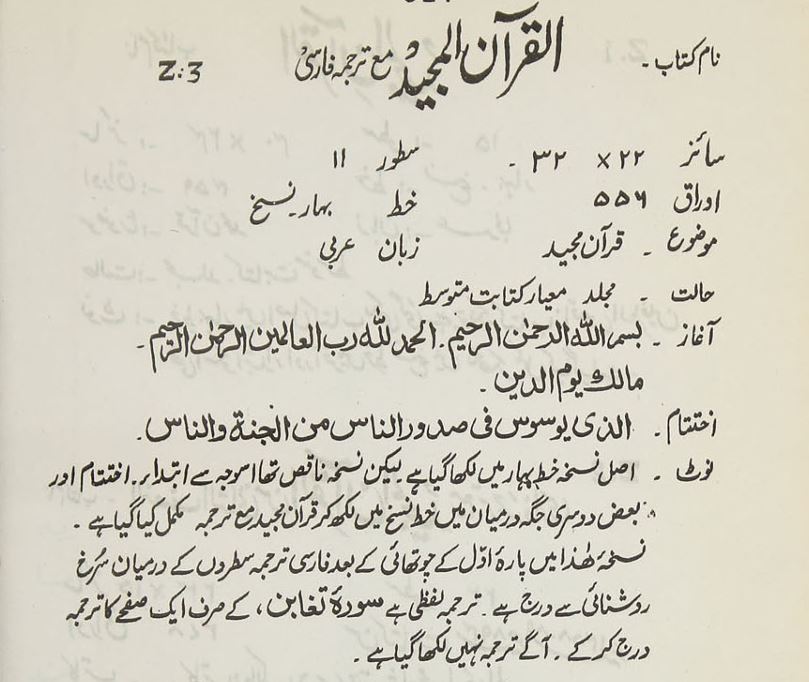 نام کتاب ۔ القرآن المجید مع ترجمہ فارسی Z:3
سائز ۲۲ × ۳۲ ۔ سطور ۱۱
اوراق ۵۵۶ خط بہار۔نسخ
موضوع ۔ قرآن مجید زبان عربی
حالت ۔ مجلد معیار کتابت متوسط
آغاز ۔ بسم اللہ الرحمٰن الرحیم ۔ الحمد للہ رب العالمین الرحمٰن الرحیم ۔
مالک یوم الدین ۔
اختتام ۔ الذی یوسوس فی صدور الناس من الجنة والناس ۔
نوٹ ۔ اصل نسخہ خط بہار میں لکھا گیا ہے لیکن نسخہ ناقص تھا اسوجہ سے ابتداء ۔ اختتام اور
بعض دوسری جگہ درمیان میں خط نسخ میں لکھ کر قرآن مجید مع ترجمہ مکمل کیا گیا ہے ۔
نسخۂ ھٰذا میں پارۂ اوّل کے چوتھائی کے بعد فارسی ترجمہ سطروں کے درمیان سُرخ
روشنائی سے درج ہے ۔ ترجمہ لفظی ہے سورۂ تغابن ، کے صرف ایک صفحے کا ترجمہ
درج کر کے ۔ آگے ترجمہ نہیں لکھا گیا ہے ۔